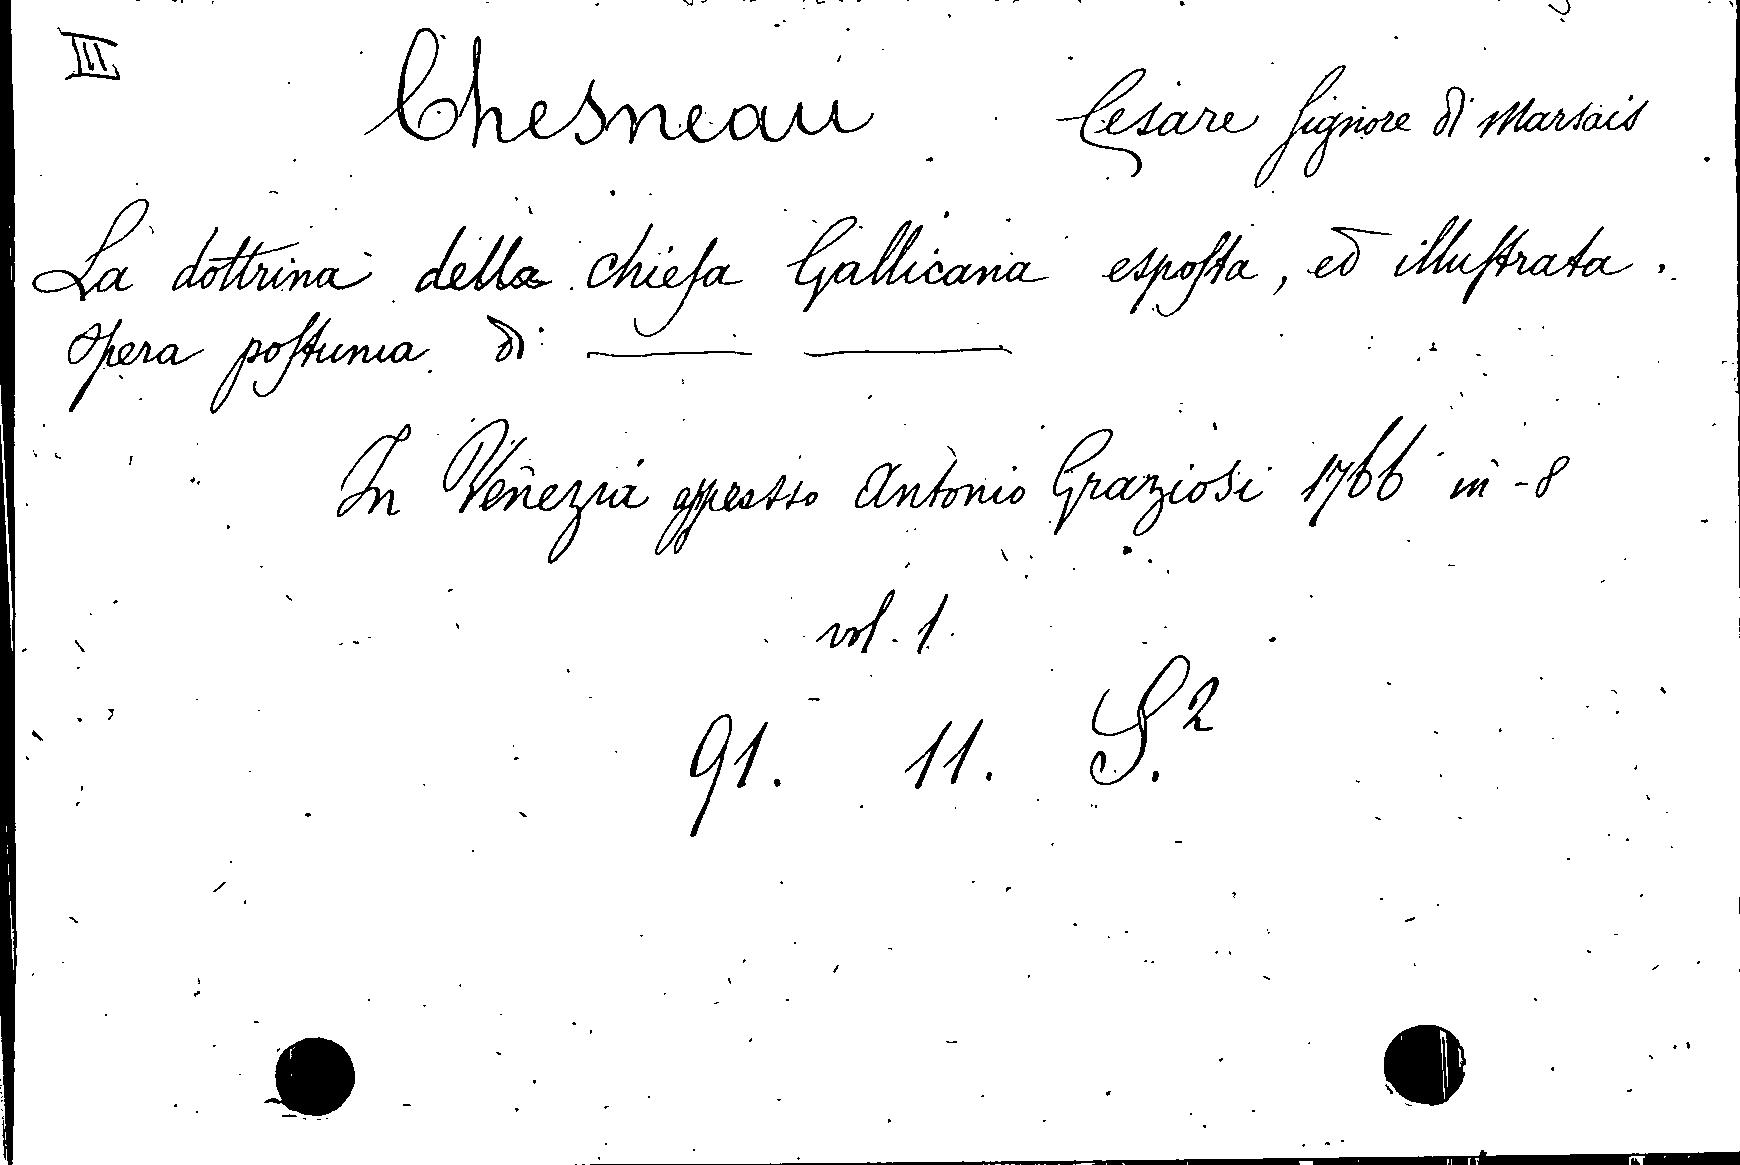 III
Chesneau Cesare Signore di Marsais
La dottrina della chiesa Gallicana esposta, ed illustrata.
Opera postuma di ——— ———
In Venezia appresso Antonio Graziosi 1766 in-8
vol. 1.
91. 11. S.²